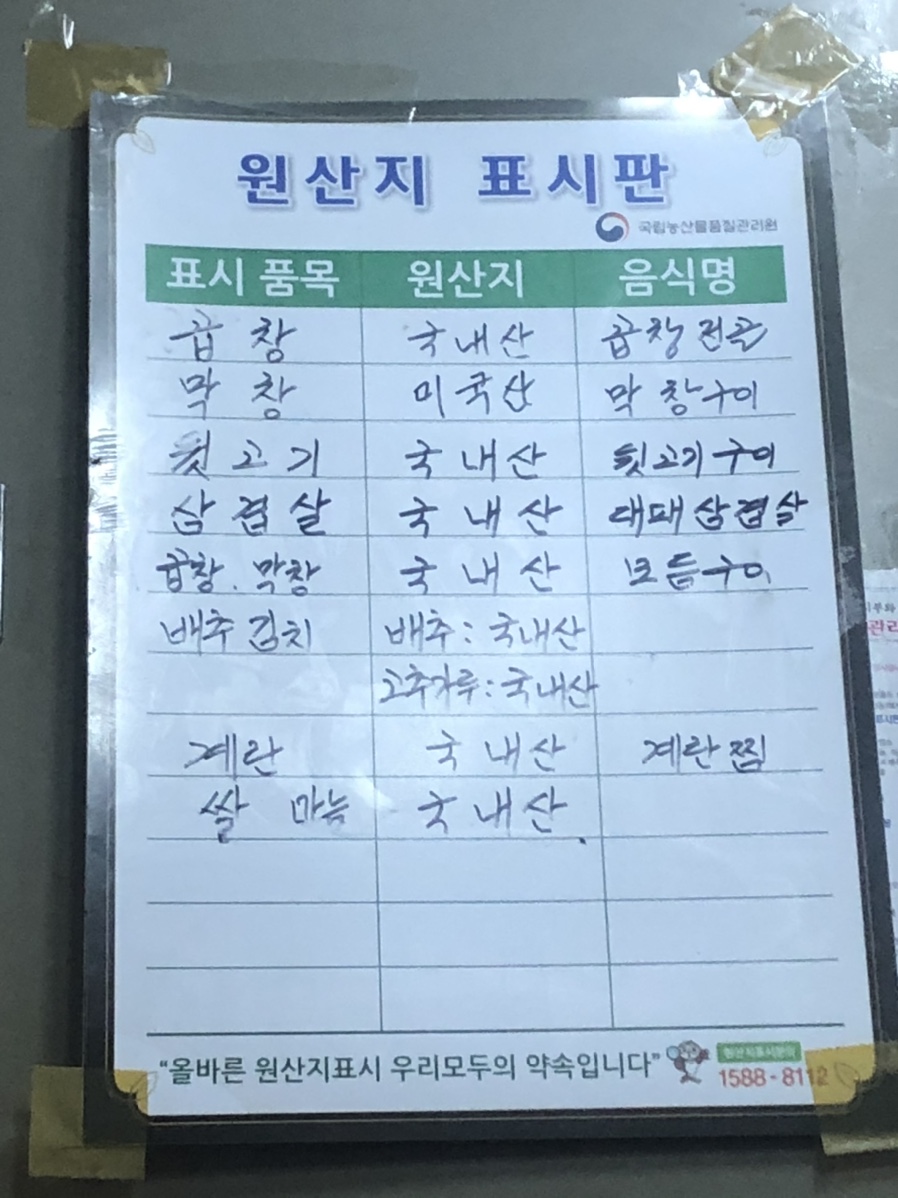 원산지 표시판
국립농산물품질관리원
표시 품목 원산지 음식명
곱창 국내산 곱창전골
막창 미국산 막창구이
뒷고기 국내산 뒷고기구이
삼겹살 국내산 대패삼겹살
곱창. 막창 국내산 모듬구이
배추김치 배추: 국내산
고추가루: 국내산
계란 국내산 계란찜
쌀 마늘 국내산
"올바른 원산지표시 우리모두의 약속입니다"
원산지표시문의
1588-8112
관리